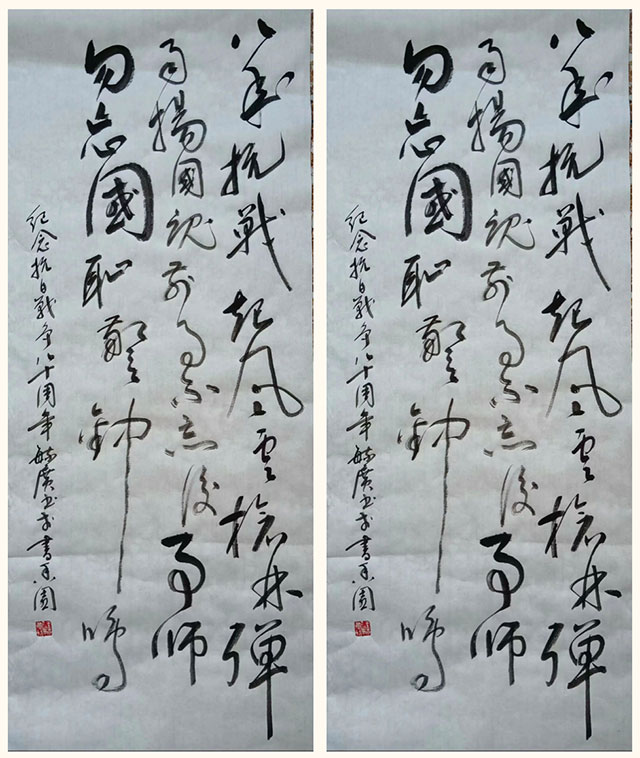 八年抗戰起风雲槍林彈
雨揚國魂前事不忘後事師
勿忘國恥警鈡鳴
紀念抗日戰争八十周年毓廣书于書香園
八年抗戰起风雲槍林彈
雨揚國魂前事不忘後事師
勿忘國恥警鈡鳴
紀念抗日戰争八十周年毓廣书于書香園